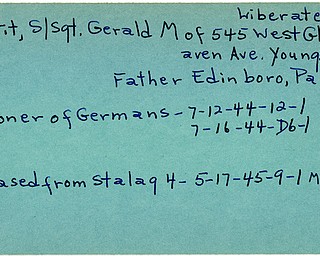 Liberate
rit, S/Sgt. Gerald M of 545 West Gl
aven Ave. Young
Father Edinboro, Pa
oner of Germans - 7-12-44-12-1
7-16-44-D6-1
ased from Stalag 4- 5-17-45-9-1 M